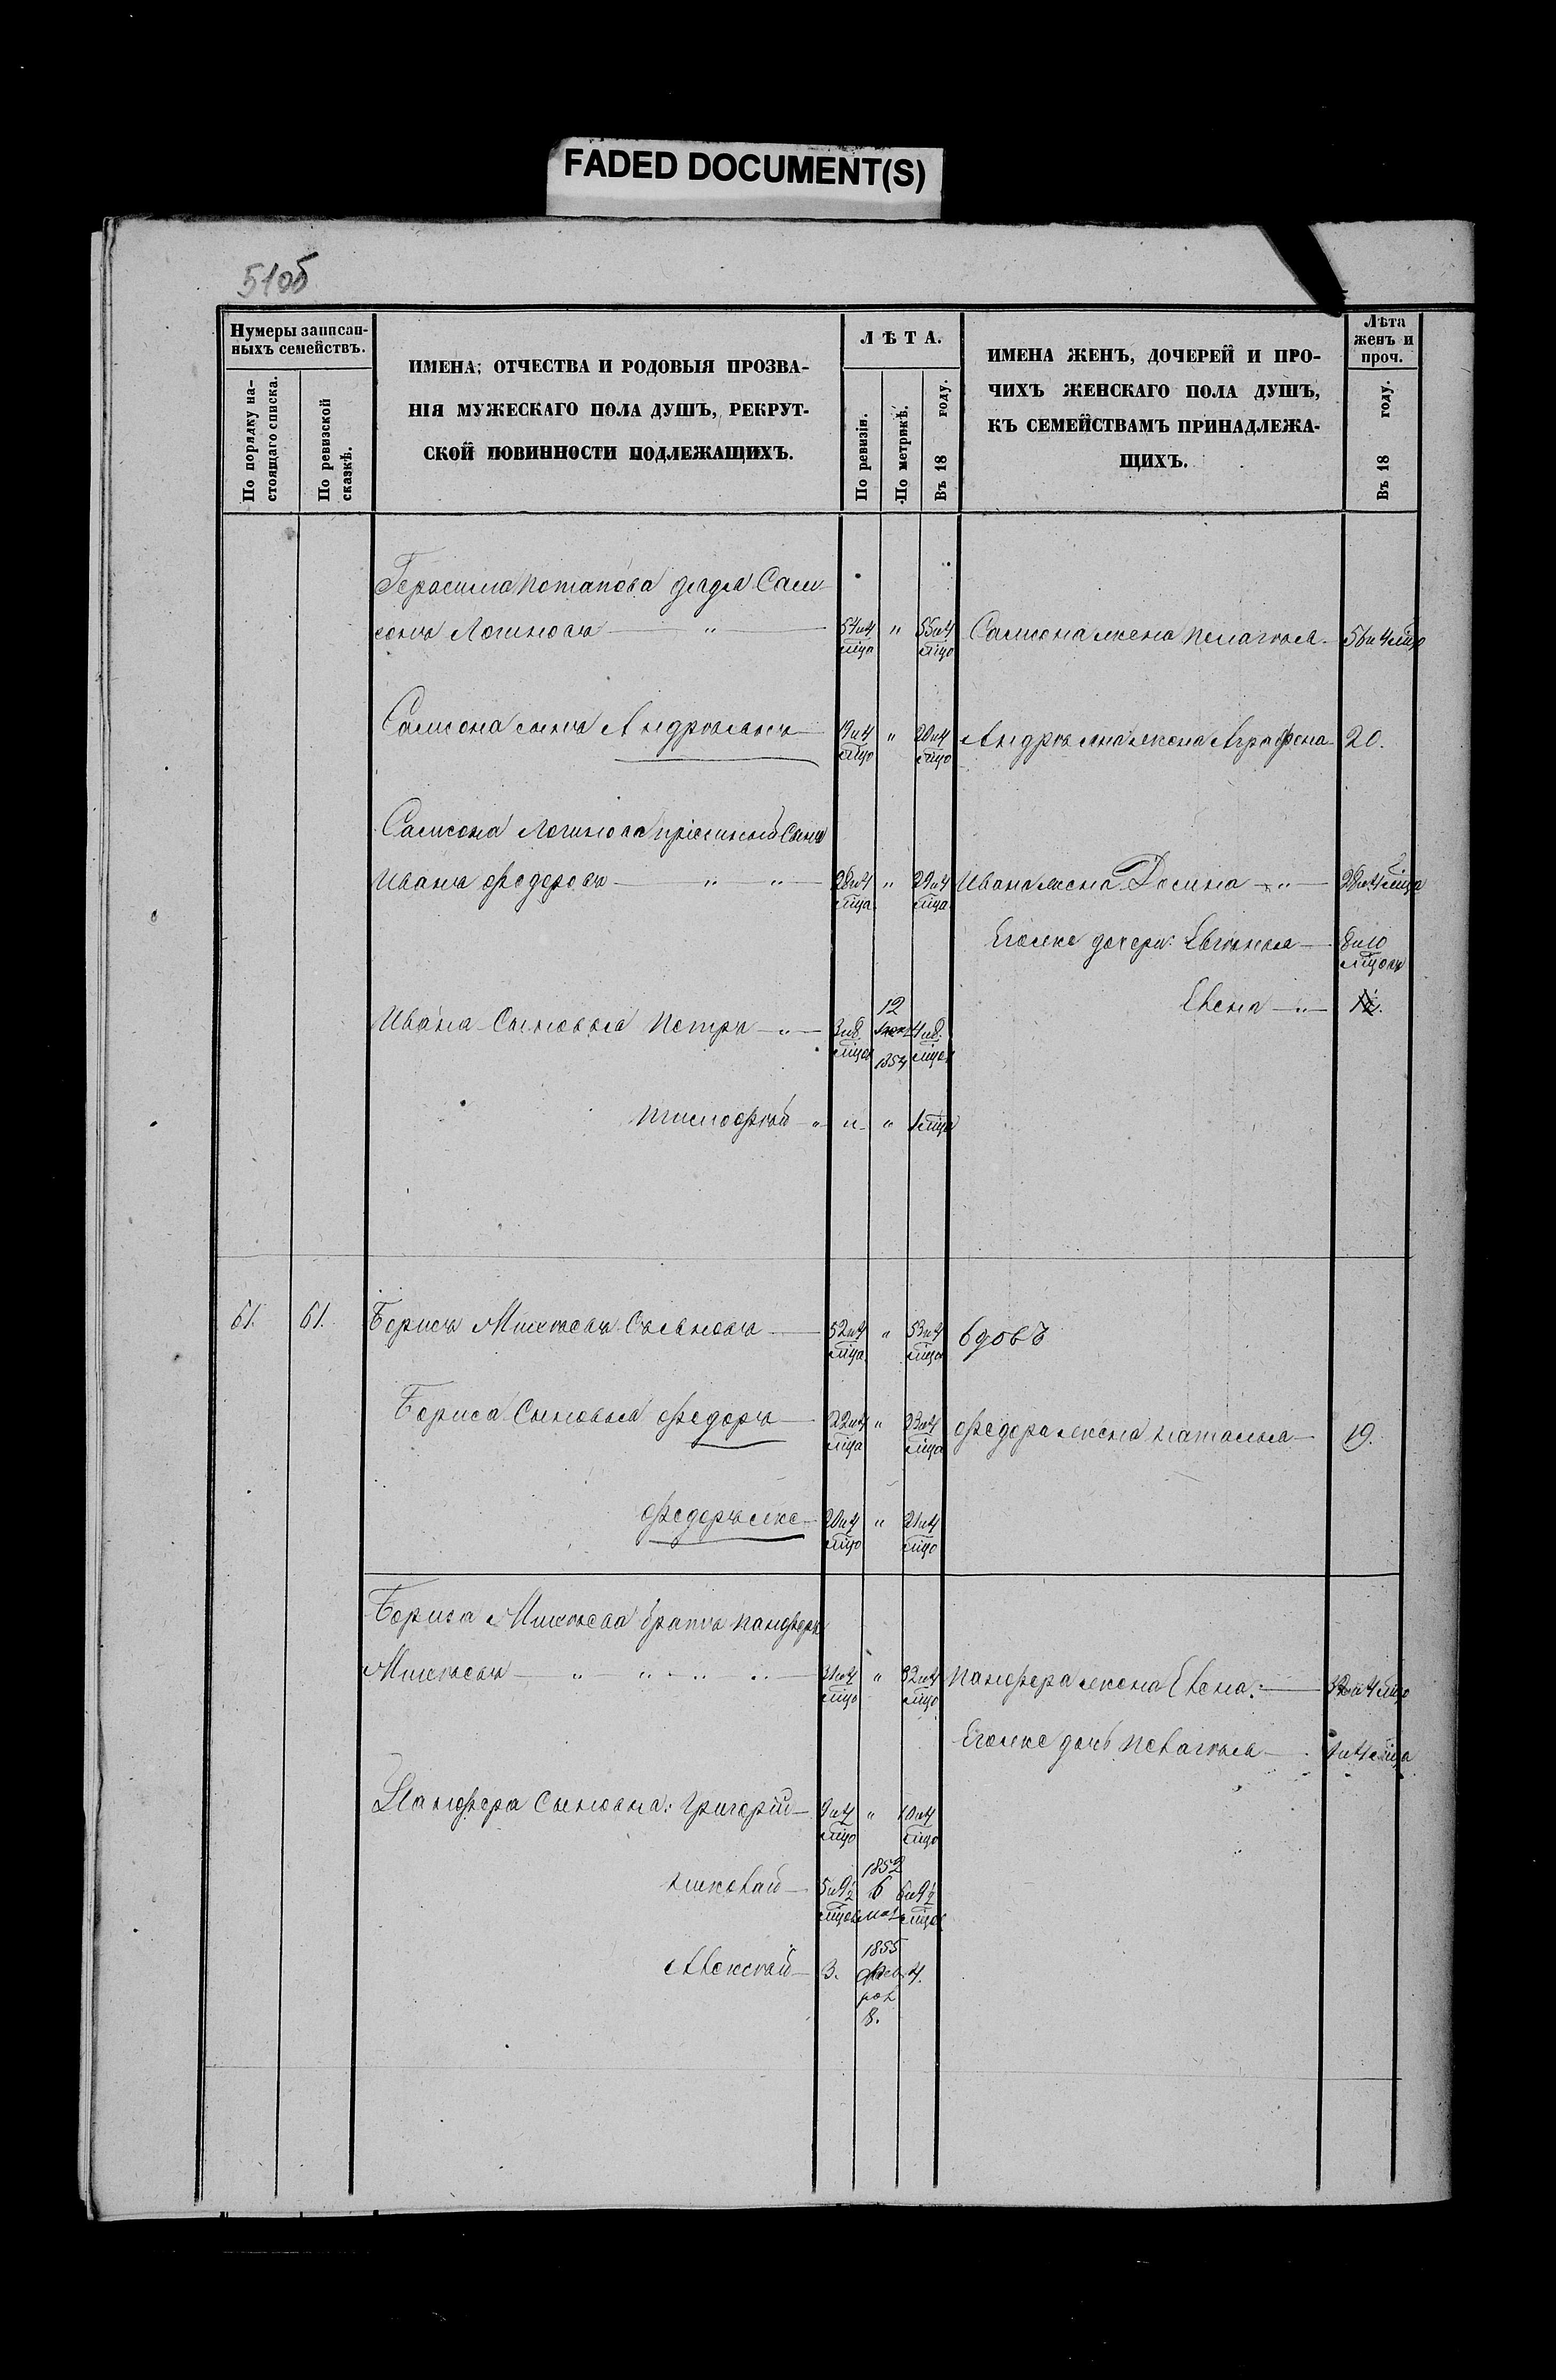 FADED DOCUMENT(S)
51об
Нумеры записан-
ныхъ семействъ.
По порядку на-
стоящаго списка.
По ревизской
сказкѣ.
ИМЕНА, ОТЧЕСТВА И РОДОВЫЯ ПРОЗВА-
НІЯ МУЖЕСКАГО ПОЛА ДУШЪ, РЕКРУТ-
СКОЙ ПОВИННОСТИ ПОДЛЕЖАЩИХЪ.
ЛѢТА.
По ревизіи.
По метрикѣ.
Въ 18 году.
ИМЕНА ЖЕНЪ, ДОЧЕРЕЙ И ПРО-
ЧИХЪ ЖЕНСКАГО ПОЛА ДУШЪ,
КЪ СЕМЕЙСТВАМЪ ПРИНАДЛЕЖА-
ЩИХЪ.
Лѣта
женъ и
проч.
Въ 18 году.
Герасима Потапова дядя Сам-
сонъ Логиновъ — " — 54 и 4 мца " 55 и 4 мца Самсона жена Пелагѣя 56 и 4 мца
Самсона сынъ Андреянъ 19 и 4 мца " 20 и 4 мца Андреяна жена Аграфена 20.
Самсона Логинова пріемный сынъ
Иванъ Федоровъ — " — " — 28 и 4 мца " 29 и 4 мца Ивана жена Домна — " — 28 и 4 мца
Его же дочери: Евгенья — 8 и 10 мцовъ
Елена — " —
Ивана Сыновья Петръ — " — 3 и 8 мцов 12 1854 4 и 8 мцов
Тимофей " " " 1 мца
61. 61. Борисъ Михѣевъ — 52 и 4 мца " 53 и 4 мца вдовъ
Бориса Сыновья Федоръ — 22 и 4 мца " 23 и 4 мца Федора жена Наталья — 19.
Федоръ же — 20 и 4 мца " 21 и 4 мца
Бориса Михѣева братъ Панферъ
Михѣевъ — " " " " — 31 и 4 мца " 32 и 4 мца Панфера жена Елена: —
Его же дочь Пелагѣя — 1 и 4 мца
Панфера Сыновья: Григорій — 9 и 4 мца " 10 и 4 мца
Николай — 5 и 9½ мцов 1852 6 6 и 9½ мцов
Алексѣй — 3. 1855 Фев рал 8. 4.